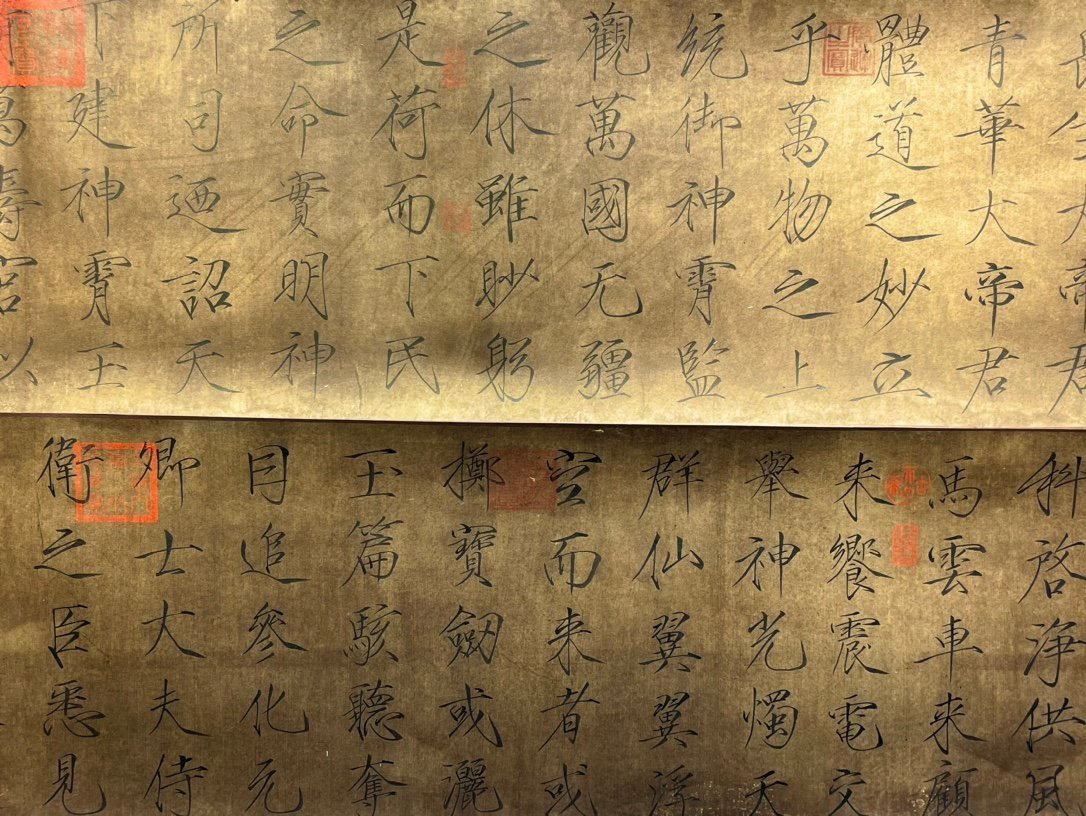 長生大帝君
青華大帝君
體道之妙立
乎萬物之上
統御神霄監
觀萬國无疆
之休雖眇躬
是荷而下民
之命實明神
所司迺詔天
下建神霄玉
萬壽宮以
科啓淨供風
馬雲車来顧
来饗震電交
舉神光燭天
群仙翼翼浮
空而来者或
擲寶劒或灑
玉篇駭聽奪
目追參化元
卿士大夫侍
衛之臣悉見